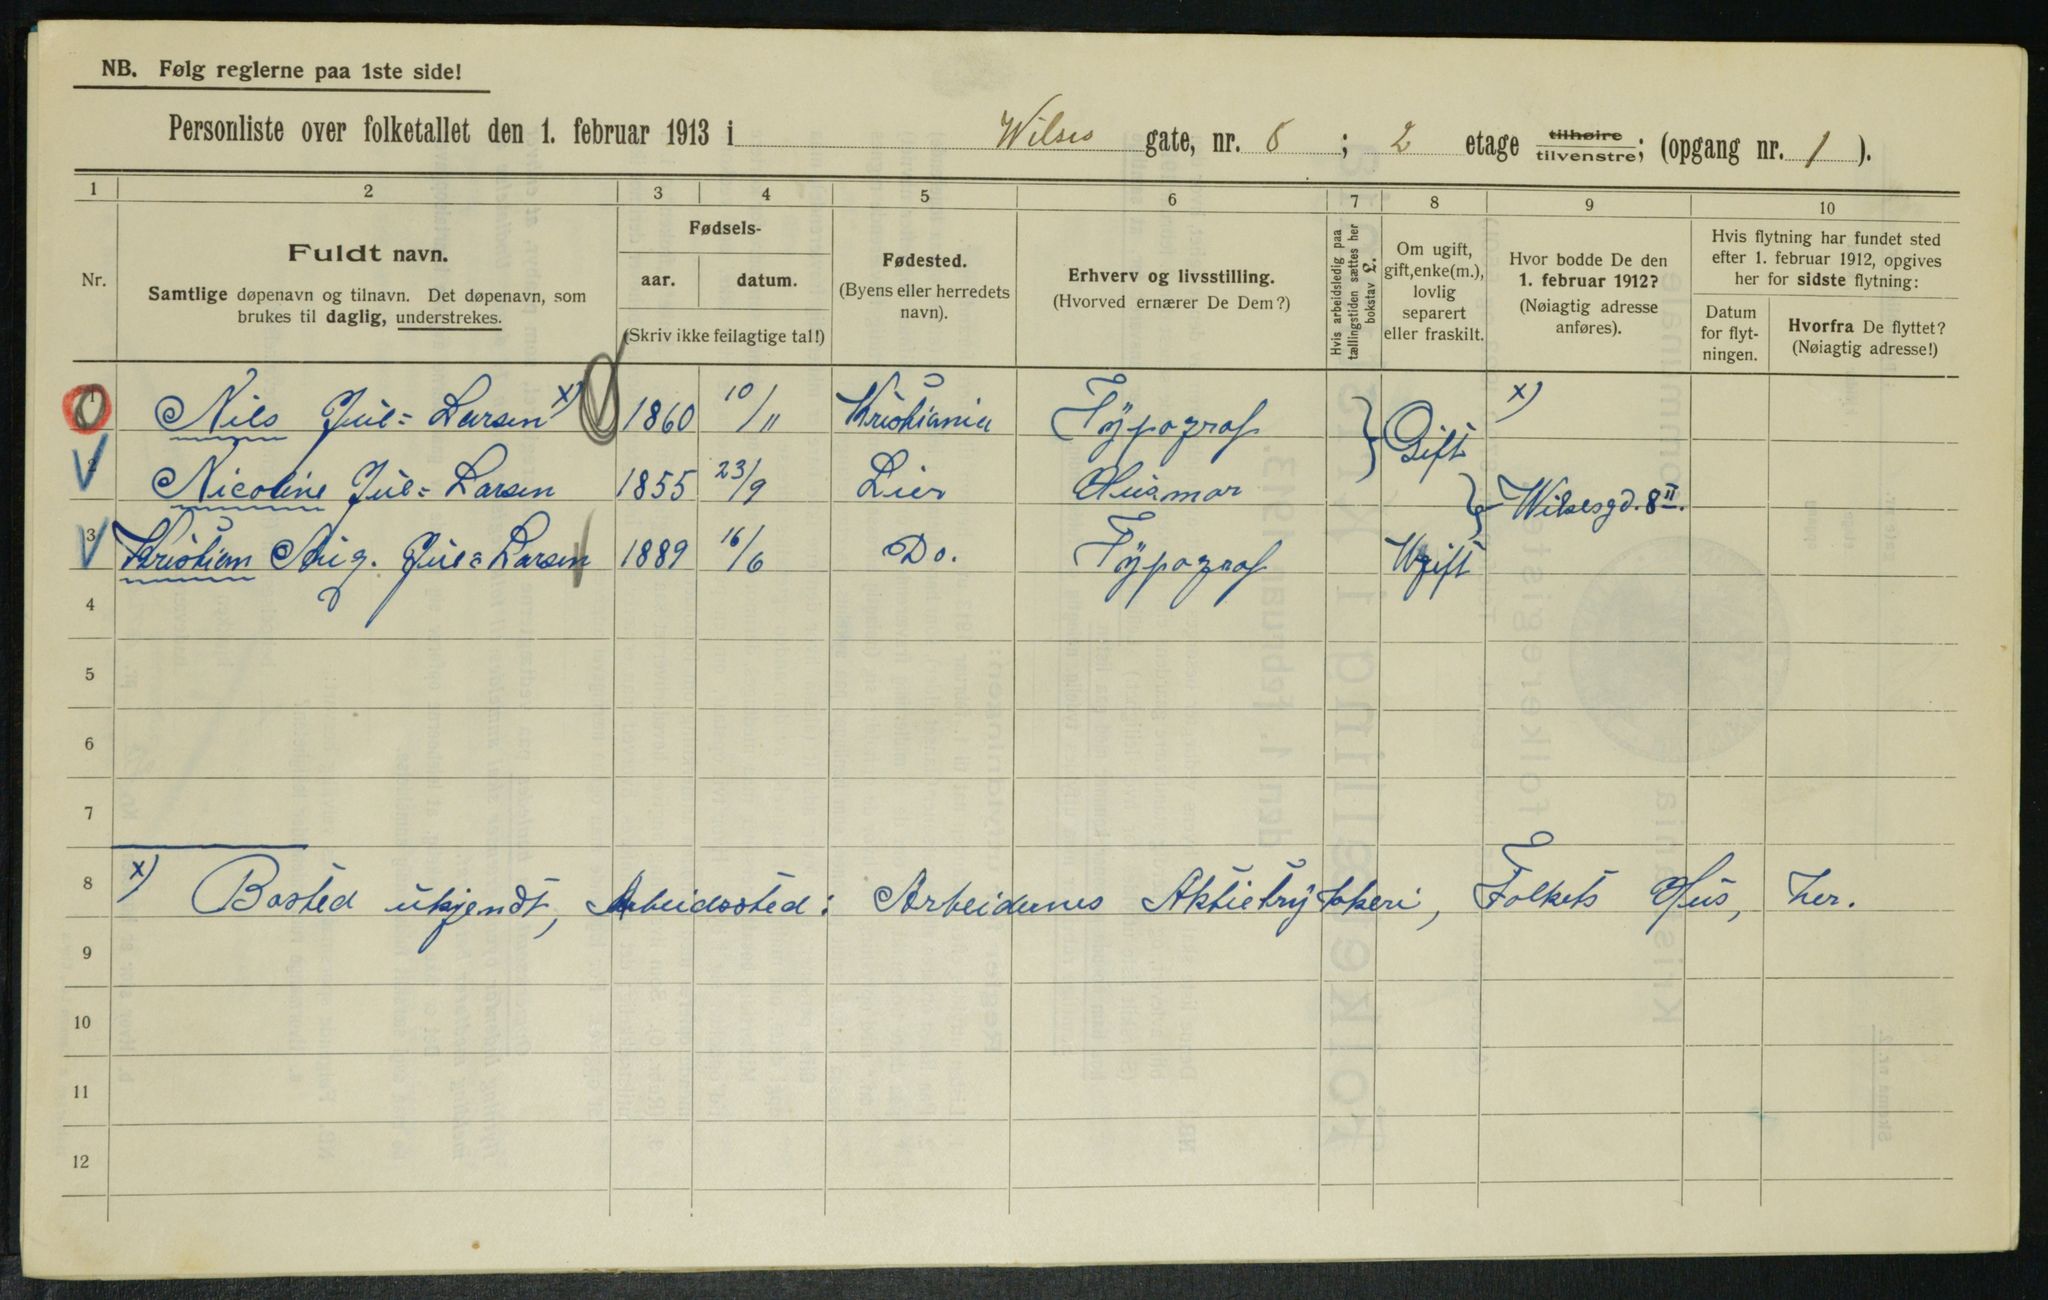 NB. Følg reglerne paa 1ste side!
Personliste over folketallet den 1. februar 1913 i Wilses gate, nr. 8 ; 2 etage tilhøire tilvenstre; (opgang nr. 1 ).
1 2 3 4 5 6 7 8 9 10
Nr.
Fuldt navn.
Samtlige døpenavn og tilnavn. Det døpenavn, som
brukes til daglig, understrekes.
Fødsels-
aar. datum.
(Skriv ikke feilagtige tal!)
Fødested.
(Byens eller herredets
navn).
Erhverv og livsstilling.
(Hvorved ernærer De Dem?)
Hvis arbeidsledig paa
tællingstiden sættes her
bokstav £.
Om ugift,
gift, enke(m.),
lovlig
separert
eller fraskilt.
Hvor bodde De den
1. februar 1912?
(Nøiagtig adresse
anføres).
Hvis flytning har fundet sted
efter 1. februar 1912, opgives
her for sidste flytning:
Datum
for flyt-
ningen.
Hvorfra De flyttet?
(Nøiagtig adresse!)
1 Nils Jul=Larsen x) 1860 10/11 Kristiania Typograf } Gift x)
2 Nicoline Jul=Larsen 1855 23/9 Lier Husmor } Wilsesgd. 8 II.
3 Kristian Aug. Jul=Larsen 1889 16/6 Do. Typograf Ugift
4
5
6
7
8 x) Bosted ukjendt, Arbeidssted: Arbeidernes Aktietrykkeri, Folkets Hus, her.
9
10
11
12